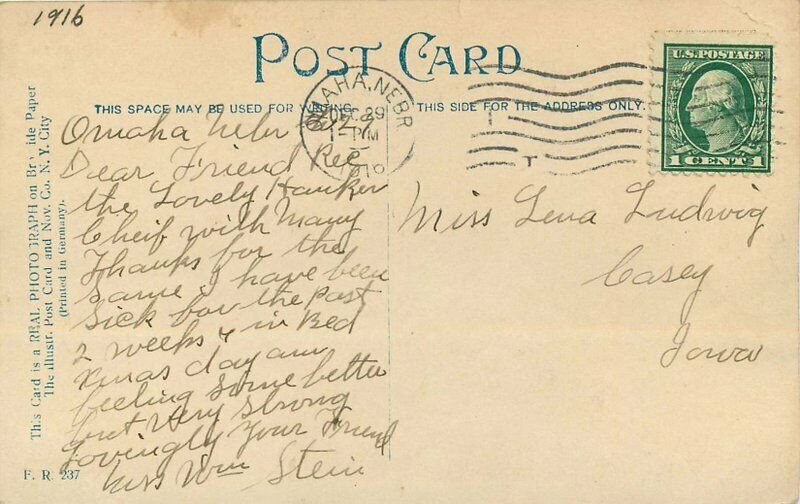 1916
POST CARD
THIS SPACE MAY BE USED FOR WRITING.
THIS SIDE FOR THE ADDRESS ONLY.
OMAHA, NEBR
DEC 29
1-PM
U.S. POSTAGE
1 CENT 1
Omaha Nebr 12-29
Dear Friend Rec
the Lovely Hanker
Cheif with Many
Thanks for the
same I have been
Sick for the past
2 weeks & in Bed
xmas day am
feeling some better
but Very strong
Lovingly Your Friend
Wm Stein
Miss Lena Ludwig
Casey
Iowa
This Card is a REAL PHOTOGRAPH on Bromide Paper
The illustr. Post Card and Nov. Co. N. Y. City
(Printed in Germany).
F. R. 237